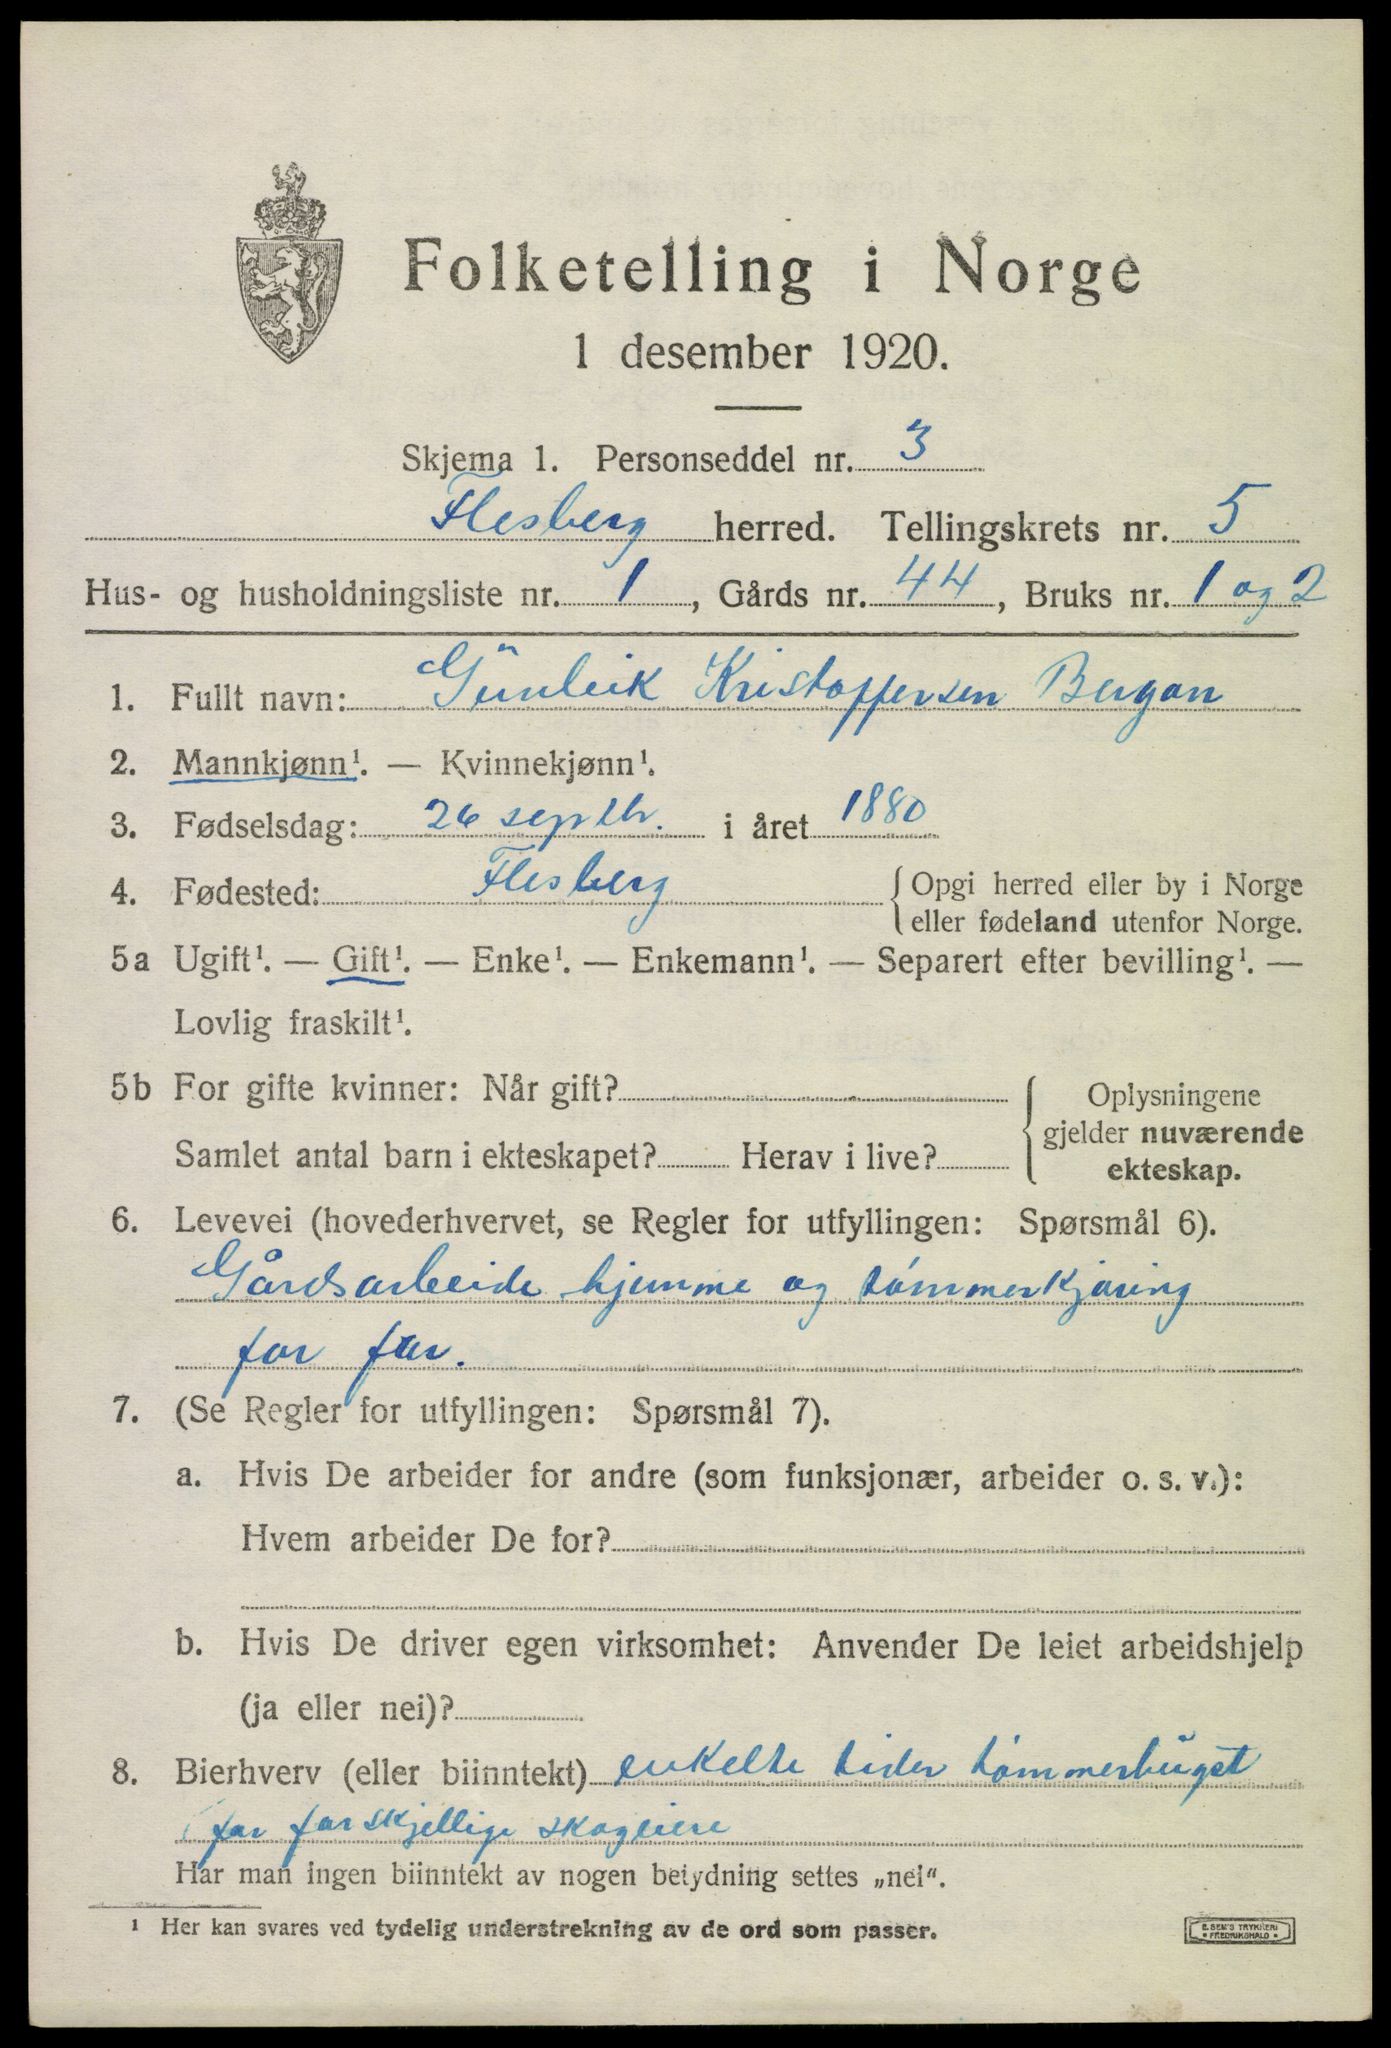 Folketelling i Norge
1 desember 1920.
Skjema 1. Personseddel nr. 3
Flesberg herred. Tellingskrets nr. 5
Hus- og husholdningsliste nr. 1, Gårds nr. 44, Bruks nr. 1 og 2
1. Fullt navn: Günleik Kristoppersen Bergan
2. Mannkjønn¹. — Kvinnekjønn¹.
3. Fødselsdag: 26 septbr. i året 1880
4. Fødested: Flesberg { Opgi herred eller by i Norge
eller fødeland utenfor Norge.
5a Ugift¹. — Gift¹. — Enke¹. — Enkemann¹. — Separert efter bevilling¹. —
Lovlig fraskilt¹.
5b For gifte kvinner: Når gift?
Samlet antal barn i ekteskapet? Herav i live?
Oplysningene
gjelder nuværende
ekteskap.
6. Levevei (hovederhvervet, se Regler for utfyllingen: Spørsmål 6).
Gårdsarbeide hjemme og tømmerkjøring
for far.
7. (Se Regler for utfyllingen: Spørsmål 7).
a. Hvis De arbeider for andre (som funksjonær, arbeider o. s. v.):
Hvem arbeider De for?
b. Hvis De driver egen virksomhet: Anvender De leiet arbeidshjelp
(ja eller nei)?
8. Bierhverv (eller biinntekt) enkelte tider tømmerhugst
for forskjellige skogeiere
Har man ingen biinntekt av nogen betydning settes „nei“.
¹ Her kan svares ved tydelig understrekning av de ord som passer.
E. SEM'S TRYKKERI
FREDRIKSHALD